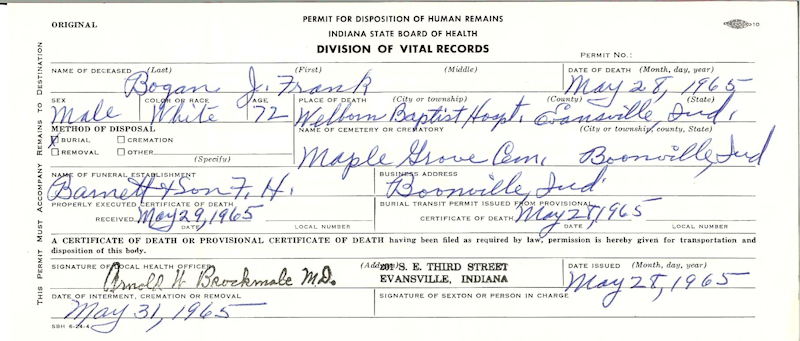 ORIGINAL
PERMIT FOR DISPOSITION OF HUMAN REMAINS
INDIANA STATE BOARD OF HEALTH
DIVISION OF VITAL RECORDS
PERMIT NO.:
THIS PERMIT MUST ACCOMPANY REMAINS TO DESTINATION
NAME OF DECEASED (Last) (First) (Middle) DATE OF DEATH (Month, day, year)
Bogan J. Frank May 28, 1965
SEX COLOR OR RACE AGE PLACE OF DEATH (City or township) (County) (State)
Male White 72 Welborn Baptist Hospt. Evansville, Ind.
METHOD OF DISPOSAL NAME OF CEMETERY OR CREMATORY (City or township, county, State)
BURIAL CREMATION
REMOVAL OTHER
(Specify)
Maple Grove Cem. Boonville, Ind
NAME OF FUNERAL ESTABLISHMENT BUSINESS ADDRESS
Barnett & Son F. H. Boonville, Ind.
PROPERLY EXECUTED CERTIFICATE OF DEATH BURIAL TRANSIT PERMIT ISSUED FROM PROVISIONAL
RECEIVED May 29, 1965 CERTIFICATE OF DEATH May 28, 1965
DATE LOCAL NUMBER DATE LOCAL NUMBER
A CERTIFICATE OF DEATH OR PROVISIONAL CERTIFICATE OF DEATH having been filed as required by law, permission is hereby given for transportation and
disposition of this body.
SIGNATURE OF LOCAL HEALTH OFFICER (Address) DATE ISSUED (Month, day, year)
Arnold W Brockmole M.D. 201 S. E. THIRD STREET
EVANSVILLE, INDIANA
May 28, 1965
DATE OF INTERMENT, CREMATION OR REMOVAL SIGNATURE OF SEXTON OR PERSON IN CHARGE
May 31, 1965
SBH 6-24-4